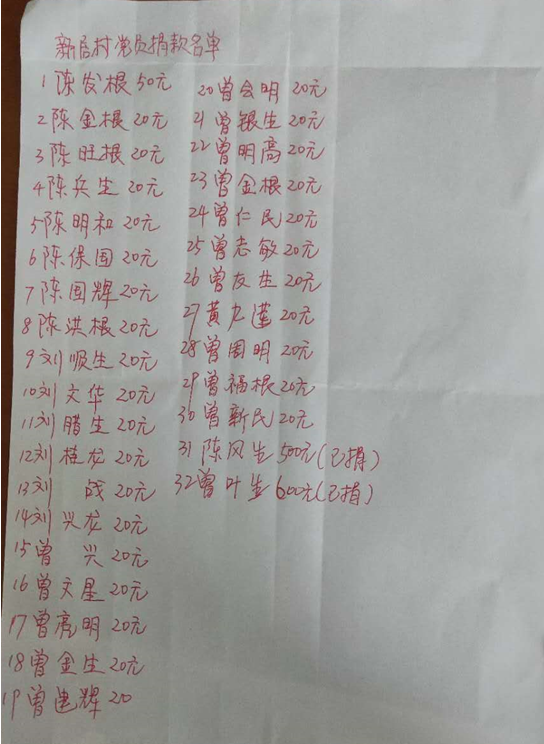 新居村党员捐款名单
1 陈发根 50元
2 陈金根 20元
3 陈旺根 20元
4 陈兵生 20元
5 陈明和 20元
6 陈保国 20元
7 陈国辉 20元
8 陈洪根 20元
9 刘顺生 20元
10 刘文华 20元
11 刘腊生 20元
12 刘桂龙 20元
13 刘 战 20元
14 刘兴龙 20元
15 曾 兴 20元
16 曾文星 20元
17 曾亮明 20元
18 曾金生 20元
19 曾建辉 20
20 曾会明 20元
21 曾银生 20元
22 曾明高 20元
23 曾金根 20元
24 曾仁民 20元
25 曾志敏 20元
26 曾友生 20元
27 黄九莲 20元
28 曾国明 20元
29 曾福根 20元
30 曾新民 20元
31 陈风生 500元(已捐)
32 曾叶生 600元(已捐)